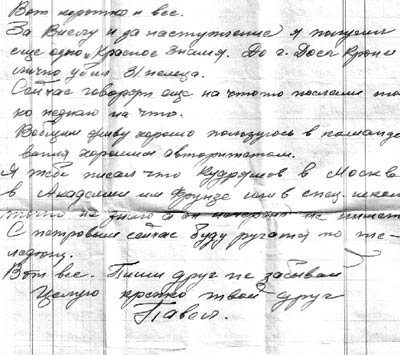 Вот коротко и все.
За Вислу и за наступление я получил
еще одно „Красное Знамя. До г.
лично убил 31 немца.
Сейчас говорят еще на что-то послали толь
ко не знаю на что.
Вобщем живу хорошо пользуюсь в командо
вания хорошим авторитетом.
Я тебе писал что Кудряшов в Москве
в Академии им Фрунзе или в спец. школе
точно не знаю а он не пишет
С Петровым сейчас буду ругатся по те-
лефону.
Вот все. Пиши друг не забывай
Целую крепко твой друг
Павел.